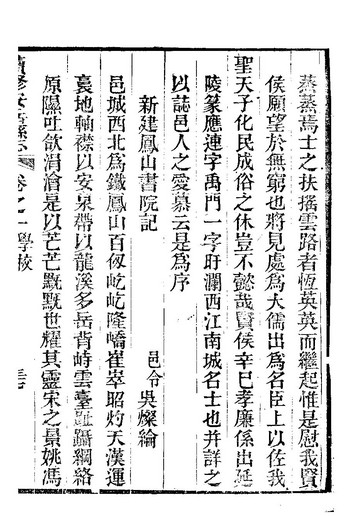 蒸蒸焉士之扶搖雲路者恆英英而繼起惟是慰我賢
侯願望於無窮也將見處為大儒出為名臣上以佐我
聖天子化民成俗之休豈不懿哉賢侯辛巳孝廉係出延
陵篆應連字禹門一字盱瀾西江南城名士也并詳之
以誌邑人之愛慕云是為序
新建鳳山書院記
邑令吳燦綸
邑城西北為鐵鳳山百仭屹屹隆嶠崔崒昭灼天漢運
裏地軸襟以安泉帶以龍溪多岳背峙雲臺趾躡綱絡
原隰吐欱涓澮是以芒芒黖黖世耀其靈宋之景姚馮
續修安岳縣志
卷之一學校